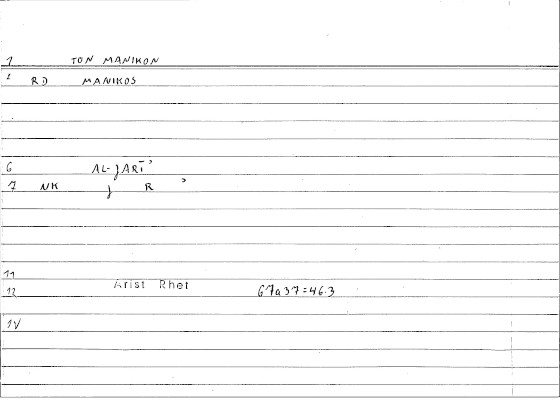 1 TON MANIKON
2 RD MANIKOS
6 AL-JARĪʾ
7 NK J R ʾ
11
12 Arist Rhet 67a37=46.3
IV